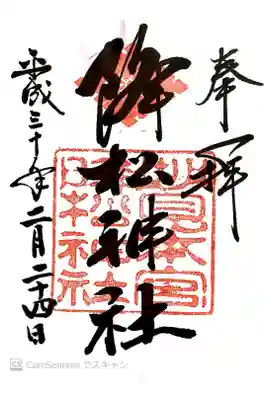 奉拝
降松神社
平成三十年二月二十四日
妙見本宮
CS CamScanner でスキャン